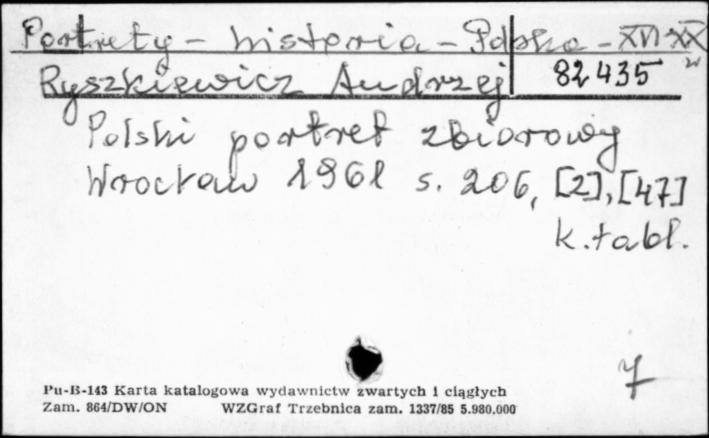 Portrety - historia - Polska - XVI-XX w
Ryszkiewicz Andrzej 82 435
Polski portret zbiorowy
Wrocław 1961 s. 206, [2], [47]
k. tabl.
7
Pu-B-143 Karta katalogowa wydawnictw zwartych i ciągłych
Zam. 864/DW/ON WZGraf Trzebnica zam. 1337/85 5.980.000